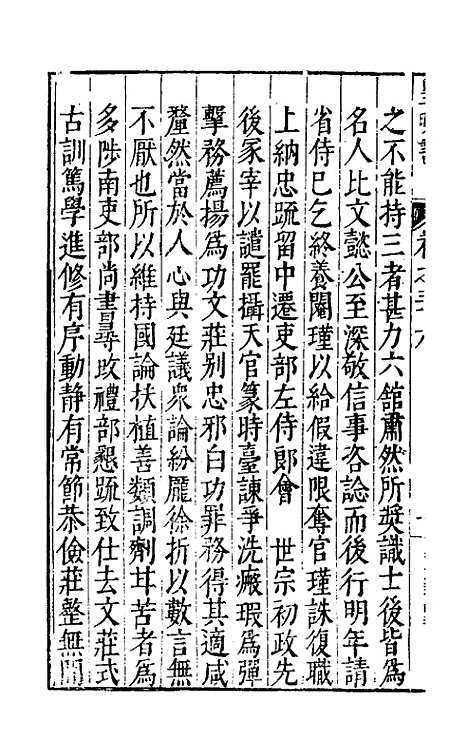 之不能持三者甚力六舘肅然所奬識士後皆爲
名人比文懿公至深敬信事咨諗而後行明年請
省侍已乞終養閹瑾以給假違限奪官瑾誅復職
上納忠䟽留中遷吏部左侍郎會　世宗初政先
後冢宰以譴罷攝天官篆時臺諫爭洗瘢瑕爲彈
擊務薦揚爲功文莊别忠邪白功罪務得其適咸
釐然當於人心與廷議衆論紛厖徐折以數言無
不厭也所以維持國論扶植善類調劑甘苦者爲
多陟南吏部尚書尋改禮部懇䟽致仕去文莊式
古訓篤學進修有序動靜有常節恭儉莊整無間